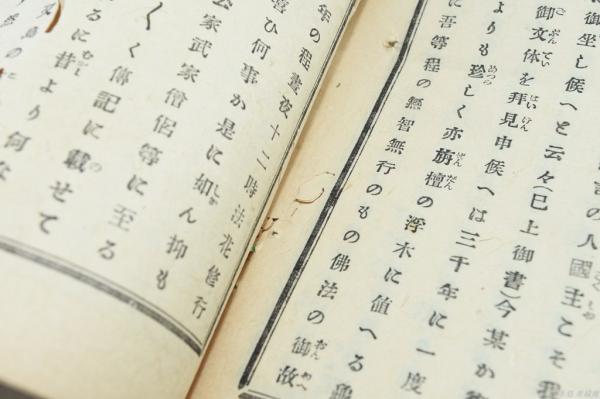 の人國主こそ我
御坐し候へと云々(已上御書)今某か
御文体を拝見申候へは三千年に一度
よりも珍しく亦栴檀の浮木に値へる龜
に吾等程の無智無行のもの佛法の御故
年の程晝夜十二時法花修行
喜ひ何事か是に如ん抑も
公家武家僧侶等に至る
く傳記に載せて
るに昔より何な